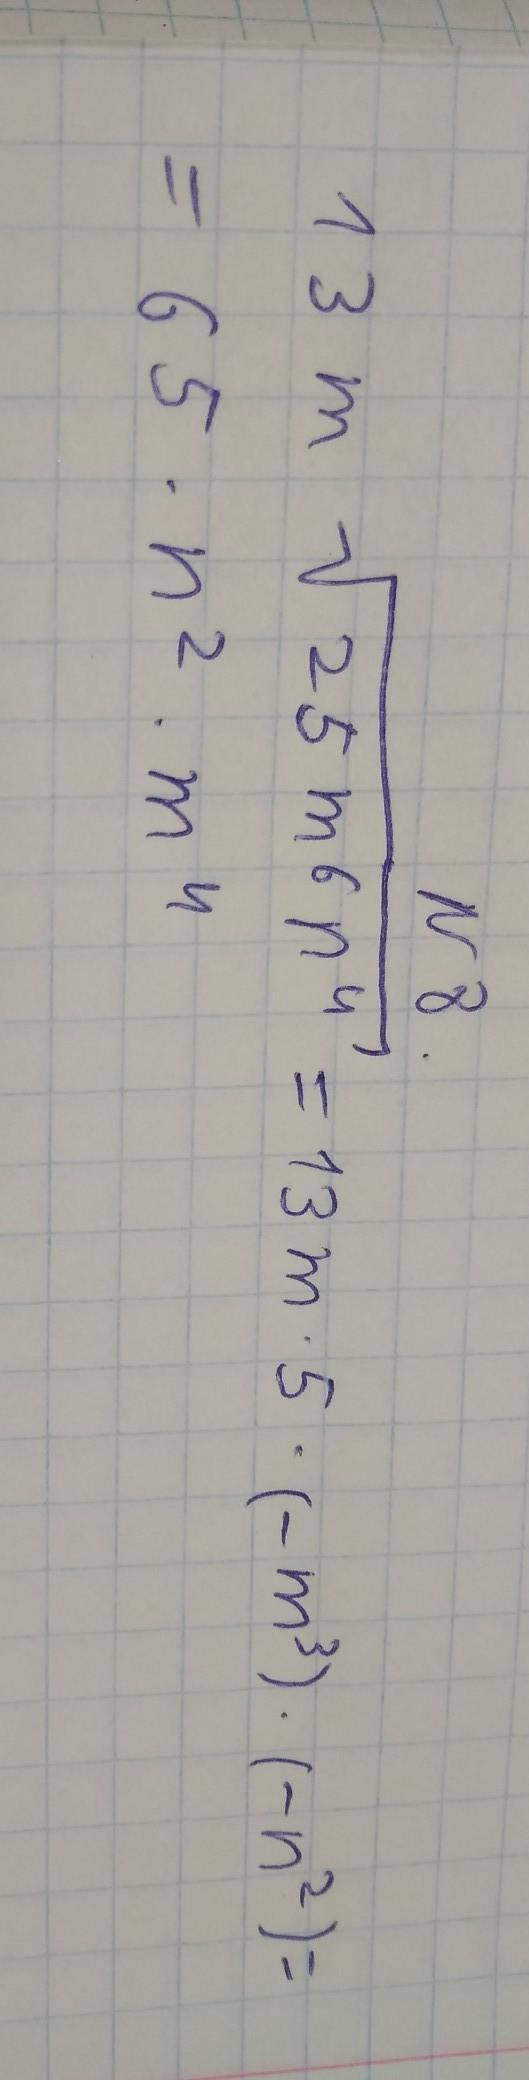 N 8.
13 m √25 m⁶ n⁴ = 13 m · 5 · (- m³) · (- n²) =
= 65 · n² · m⁴